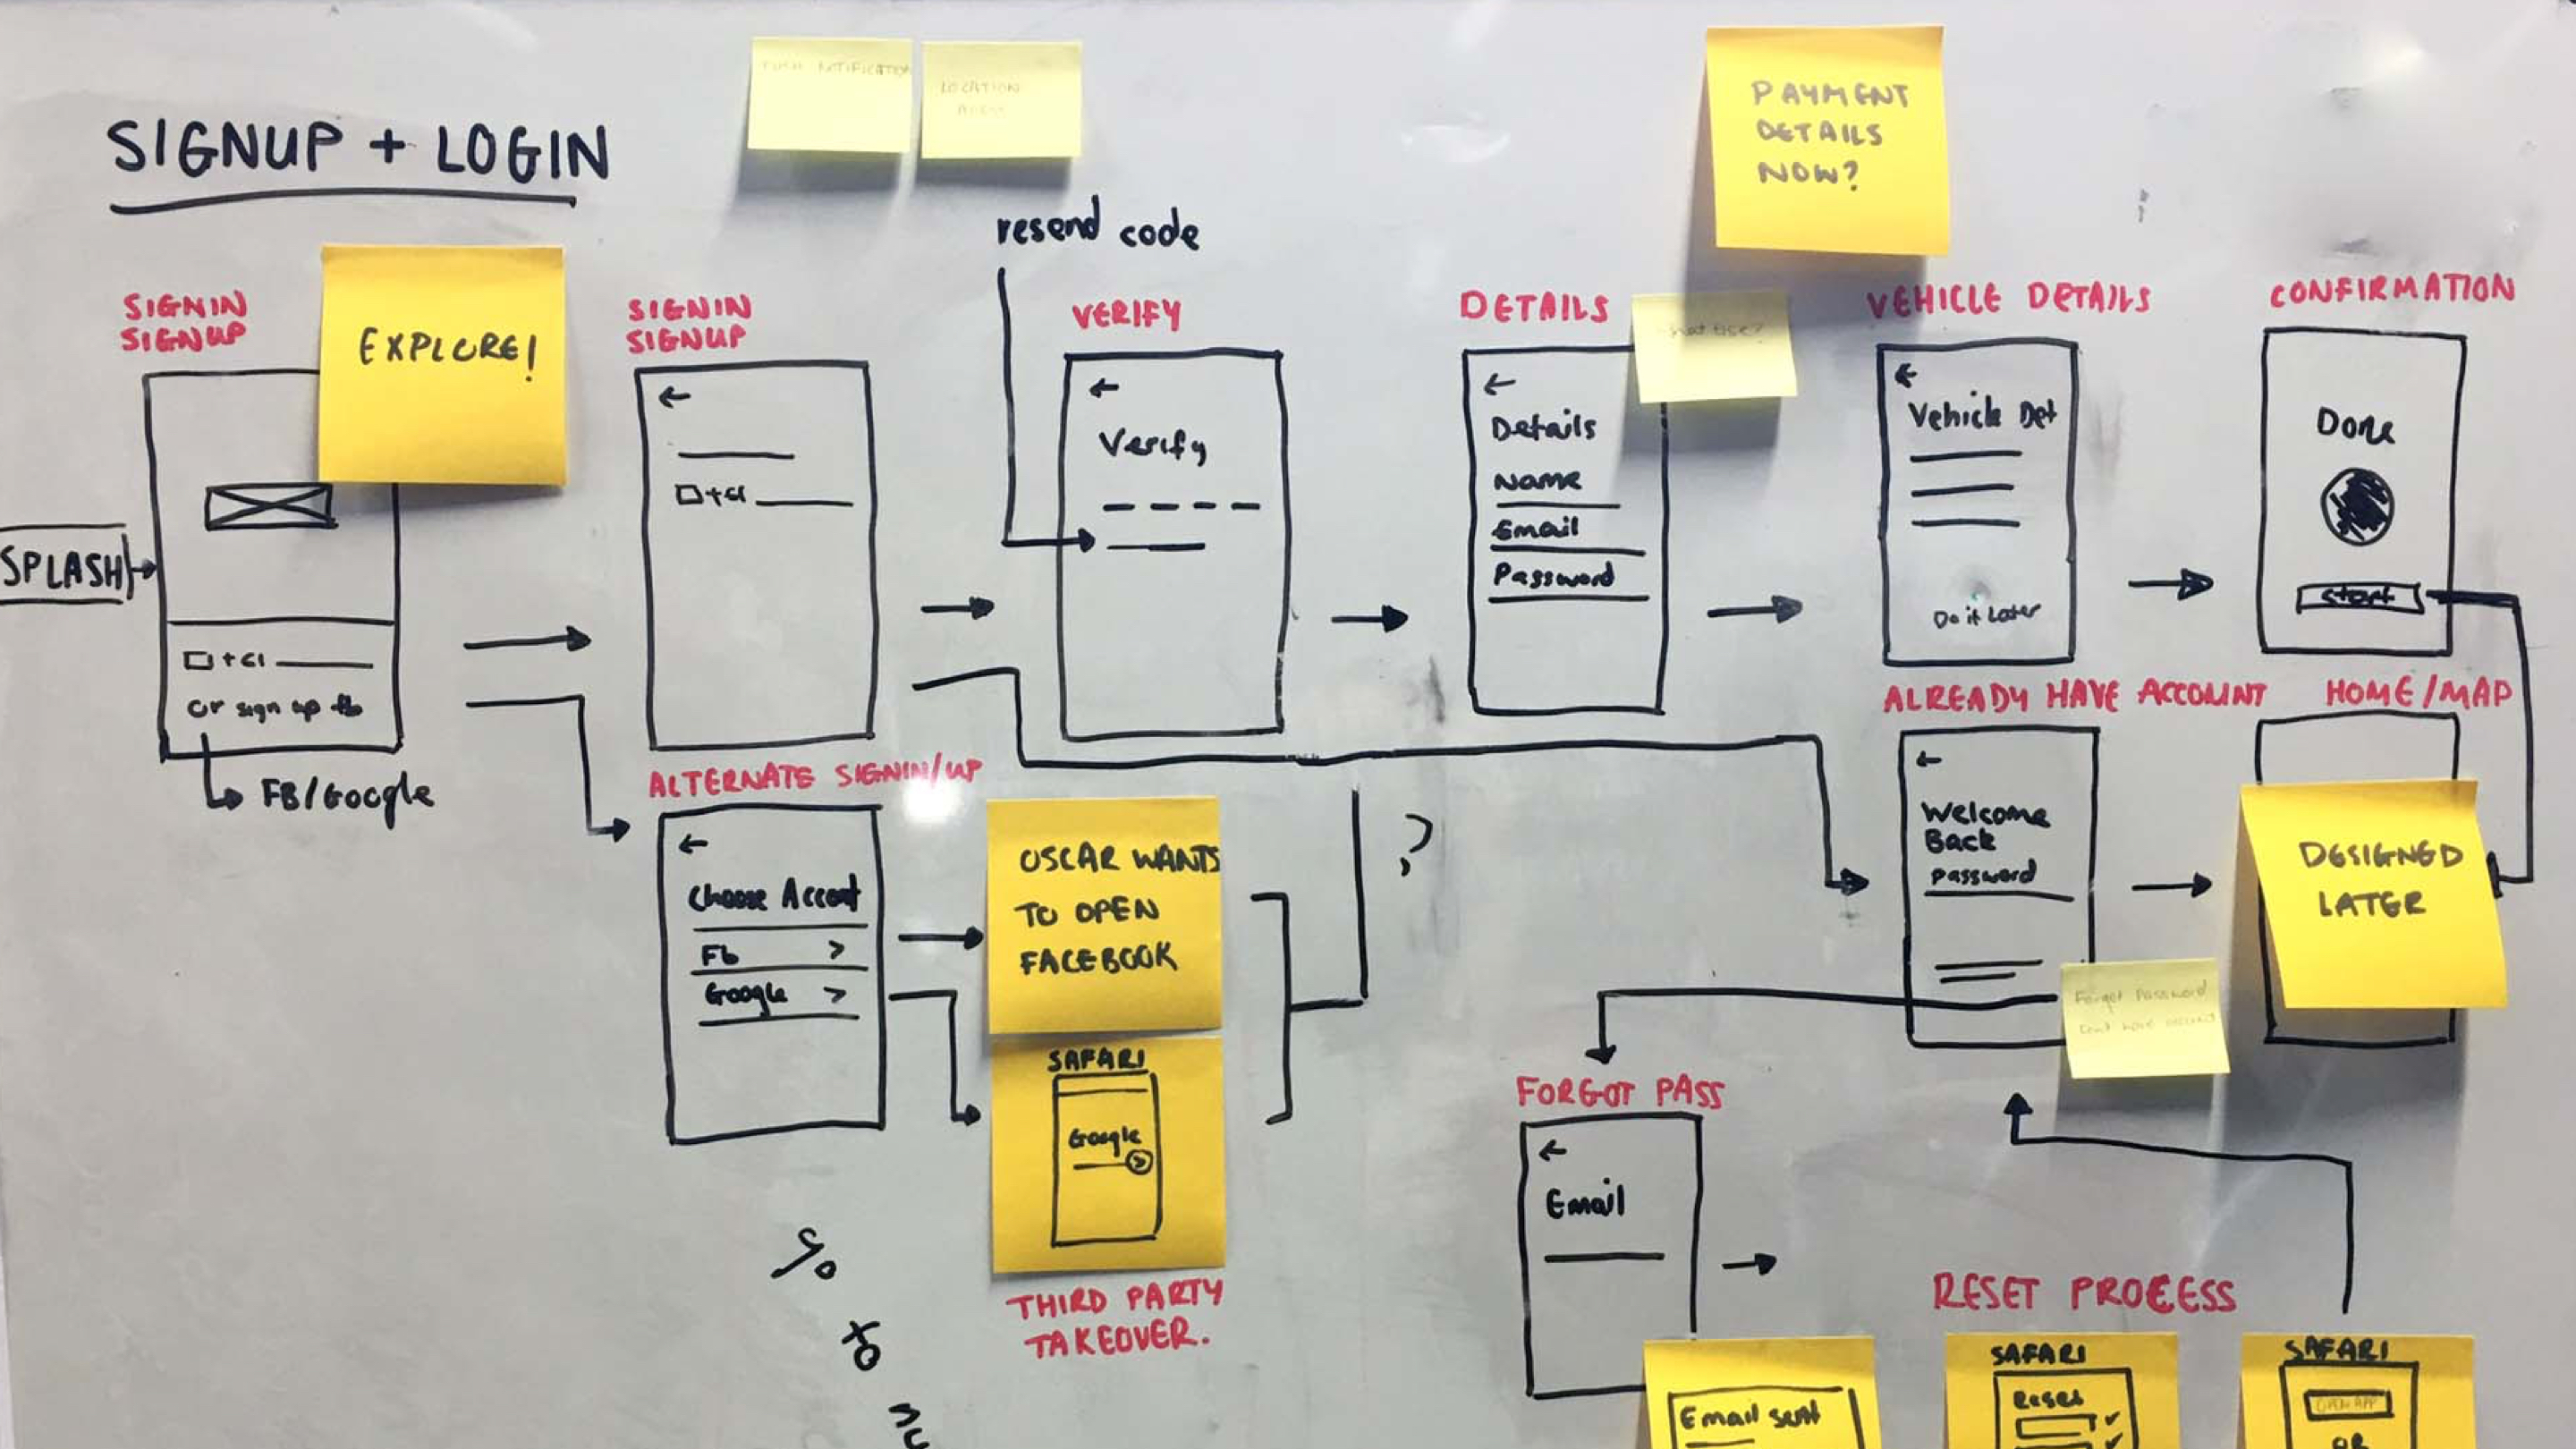 SIGNUP + LOGIN
PUSH NOTIFICATION
LOCATION
PAYMENT
DETAILS
NOW?
resend code
SIGNIN
SIGNUP
EXPLORE!
SPLASH
+61
or sign up fb
FB/Google
SIGNIN
SIGNUP
+61
VERIFY
Verify
DETAILS
Details
Name
Email
Password
VEHICLE DETAILS
Vehicle Det
Do it Later
CONFIRMATION
Done
Start
ALTERNATE SIGNIN/UP
Choose Accont
Fb >
Google >
OSCAR WANTS
TO OPEN
FACEBOOK
?
SAFARI
Google
THIRD PARTY
TAKEOVER.
ALREADY HAVE ACCOUNT
Welcome
Back
Password
Forgot Password
HOME/MAP
DESIGNED
LATER
FORGOT PASS
Email
Email sent
RESET PROCESS
SAFARI
Reset
SAFARI
OPEN APP
OR